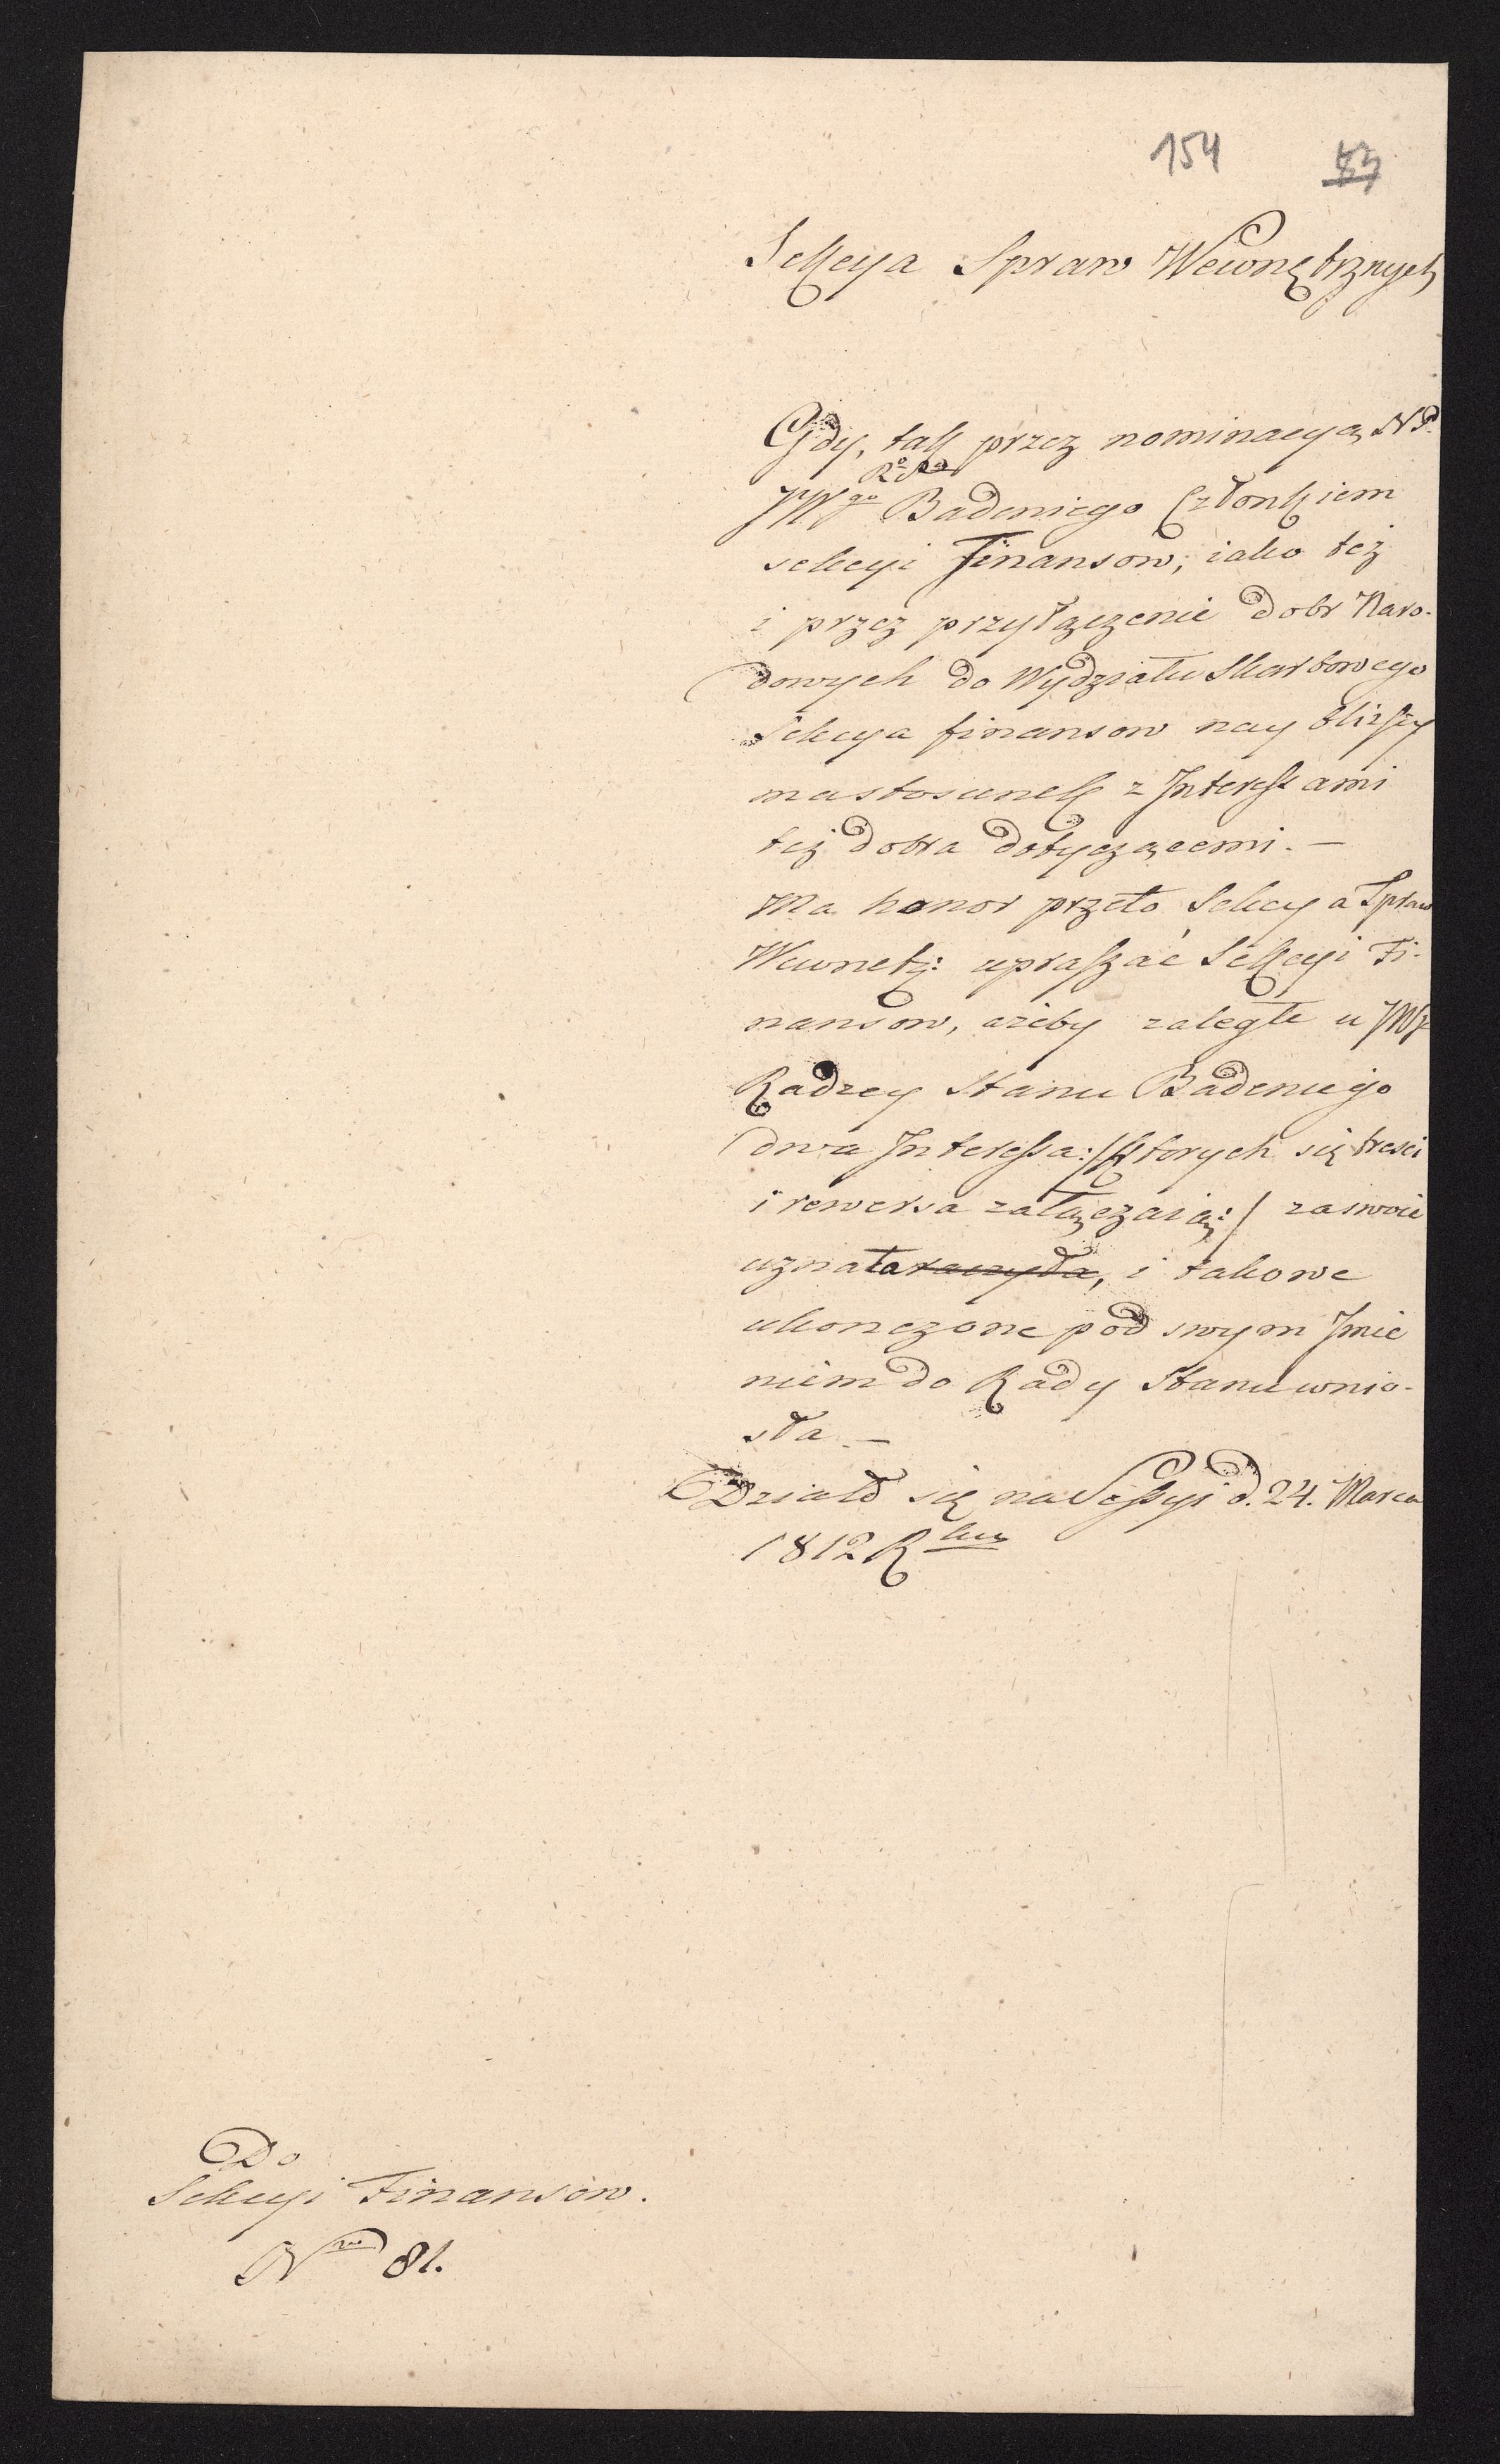 154
Sekcya Spraw Wewnętrznych
Gdy, tak przez nominacyą NP.
JWgo Badeniego Członkiem
sekcyi Finansow, iako też
i przez przyłączenie dobr Naro-
dowych do Wydziału Skarbowego
Sekcya finansow nay bliższy
ma stosunek z Interessami
też dobra dotyczącemi. —
Ma honor przeto Sekcya Spraw
Wewnetz: upraszać Sekcyi Fi-
nansow, ażeby zaległe u JWgo
Radzcy Stanu Badeniego
dwa Interessa :/ ktorych się tresci
i rewersa załączaią :/ za swoie
uznała raczyła, i takowe
ukonczone pod swym Imie
niem do Rady Stanu wnio-
sła —
Działo się na Sessyi d. 24. Marca
1812 R
Do
Sekcyi Finansów.
Nro 81.